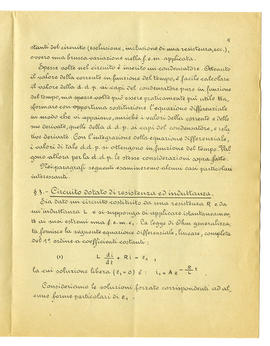 4
stanti del circuito (esclusione, inclusione di una resistenza, ecc.),
ovvero una brusca variazione nella f.e.m. applicata.
Spesse volte nel circuito è inserito un condensatore. Ottenuto
il valore della corrente in funzione del tempo, è facile calcolare
il valore della d.d.p. ai capi del condensatore pure in funzione
del tempo, ma spesse volte può essere praticamente più utile tra_
sformare con opportuna sostituzione l'equazione differenziale
in modo che vi appaiono, anziché i valori della corrente e delle
sue derivate, quelli della d.d.p. ai capi del condensatore, e rela_
tive derivate. Con l'integrazione dell'equazione differenziale,
i valori di tale d.d.p. si ottengono in funzione del tempo. Val_
gono allora per la d.d.p. le stesse considerazioni sopra fatte.
Nei paragrafi seguenti esamineremo alcuni casi particolari
interessanti.
§ 3.- Circuito dotato di resistenza ed induttanza.
Sia dato un circuito costituito da una resistenza R e da
un'induttanza L e si supponga di applicare istantaneamen_
te ai suoi estremi una f.e.m. e₁. La legge di Ohm generalizza_
ta fornisce la seguente equazione differenziale, lineare, completa
del 1° ordine a coefficienti costanti:
(1) L di/dt + Ri = e₁,
la cui soluzione libera (e₁=0) è: i₁ = A e^{-R/L t}
Consideriamo le soluzioni forzate corrispondenti ad al_
cune forme particolari di e₁.